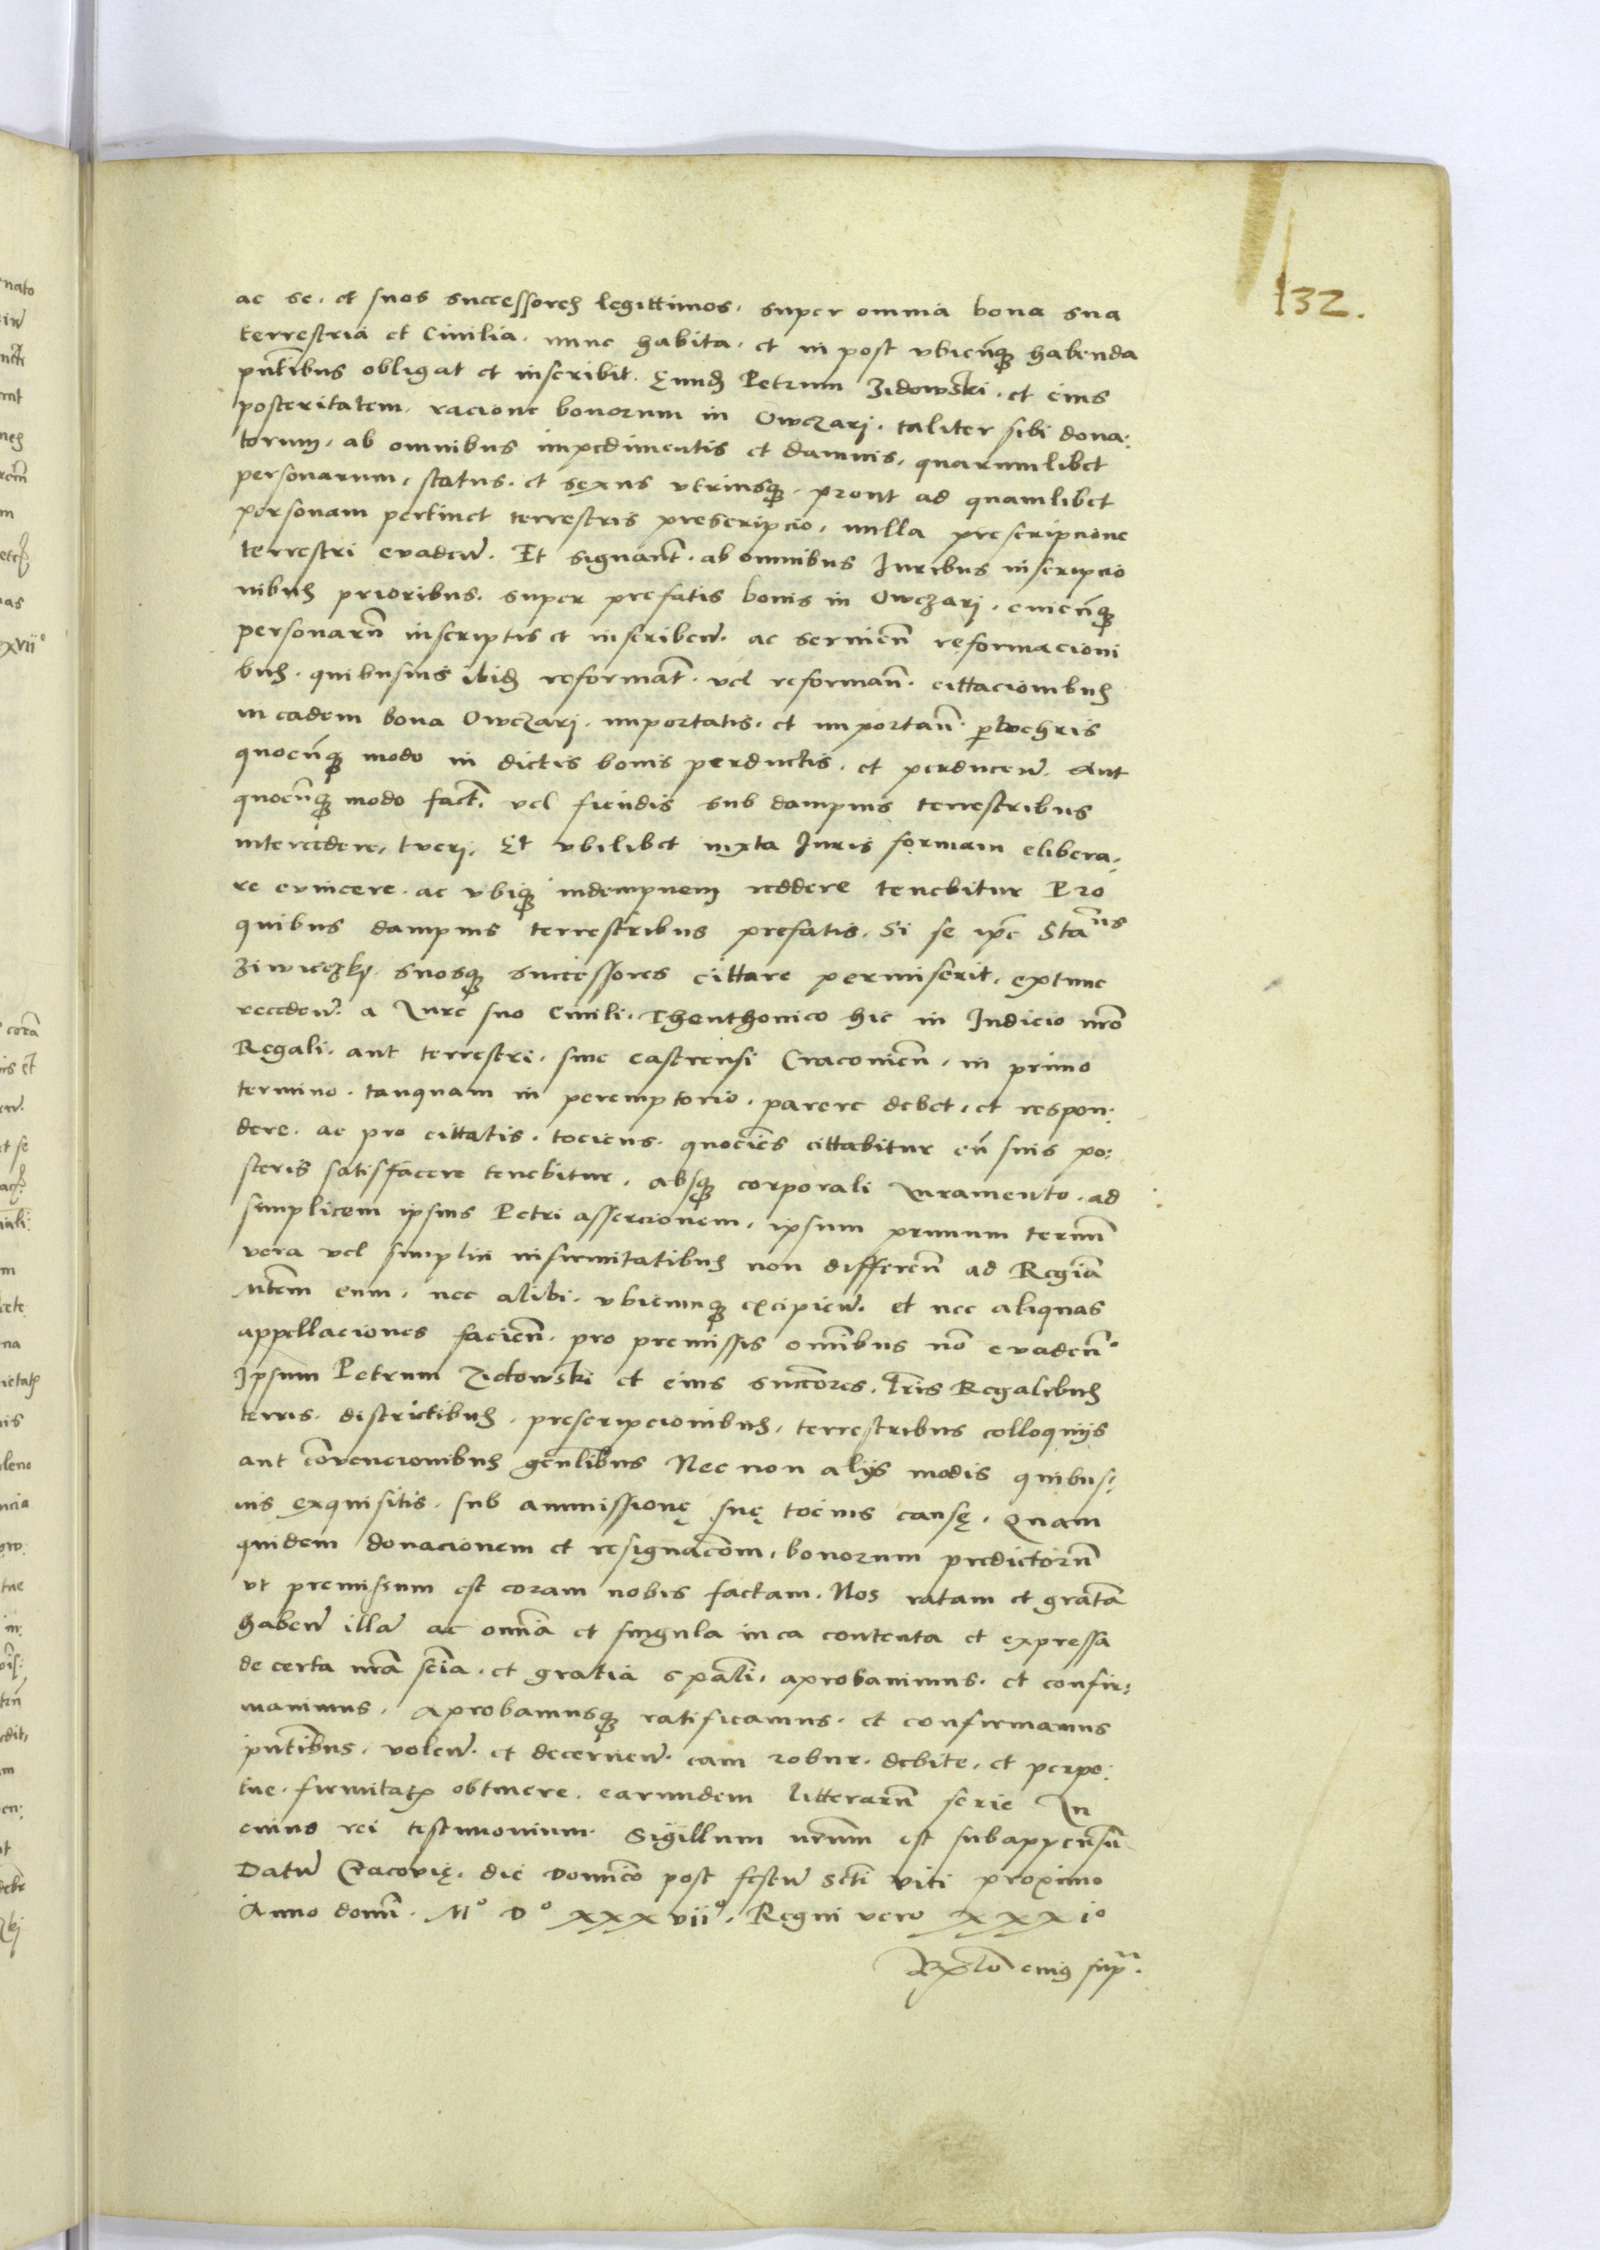 132.
ac se. et suos successores legittimos. super omnia bona sua
terrestria et Ciuilia. nunc habita. et in post vbicunq3 habenda
pntibus obligat et inscribit. Eund3 Petrum Zidowski. et eius
posteritatem. racione bonorum in Owczari. taliter sibi dona:
torum. ab omnibus impedimentis et damnis. quarumlibet
personarum. status. et sexus vtriusq3. prout ad quamlibet
personam pertinet terrestris prescripcio. nulla prescripcione
terrestri evaden. Et signant. ab omnibus Iuribus inscripcio
nibus prioribus. super prefatis bonis in Owczari. cuicunq3
personarum inscriptis et inscriben. ac seruien reformacioni
bus. quibusuis ibid3 reformat. vel reforman. cittacionibus
in eadem bona Owczari. importatis. et importan.
quocunq3 modo in dictis bonis perductis. et perducen. Aut
quocunq3 modo fact. vel fiendis sub dampnis terrestribus
intercedere. tueri. Et vbilibet iuxta Iuris formam elibera.
re evincere. ac vbiq3 indempnem reddere tenebitur Pro
quibus dampnis terrestribus prefatis. Si se ipse Staus
Ziwieczky. suosq3 successores cittare permiserit. extunc
receden. a Iure suo Ciuili. Theuthonico hic in Iudicio nro
Regali. aut terrestri. siue castrensi Cracouien. in primo
termino. tanquam in peremptorio. parere debet. et respon:
dere. ac pro cittatis. tociens. quociens cittabitur cu suis po:
steris satisfacere tenebitur. absq3 corporali Iuramento. ad
simplicem ipsius Petri assercionem. ipsum primum termin
vera vel simplici infirmitatibus non differen ad Regiam
Mtem eum. nec alibi. vbicumq3 excipien. et nec aliquas
appellaciones facien. pro premissis omibus no evaden.
Ipsum Petrum Zidowski et eius succores. Lris Regalibus
terris. districtibus. prescripcionibus. terrestribus colloquijs
aut Convencionibus gnlibus Nec non alijs modis quibus:
uis exquisitis. sub ammissione sue tocius cause. Quam
quidem donacionem et resignacom. bonorum predictorum
vt premissum est coram nobis factam. Nos ratam et gratam
haben illam ac omia et singula in ea contenta et expressa
de certa nra scia. et gratia spali. aprobauimus. et confir:
mauimus. Aprobamusq3 ratificamus. et confirmamus
pntibus. volen. et decernen. eam robur. debite. et perpe:
tue. firmitatis obtinere. earundem litterarum serie In
cuius rei testimonium. Sigillum nrum est subappensum
Datum Cracovie. die Dominico post festum Scti viti proximo
Anno domi. M° D° xxxvii°. Regni vero xxxi°
Rplo cuius supra.